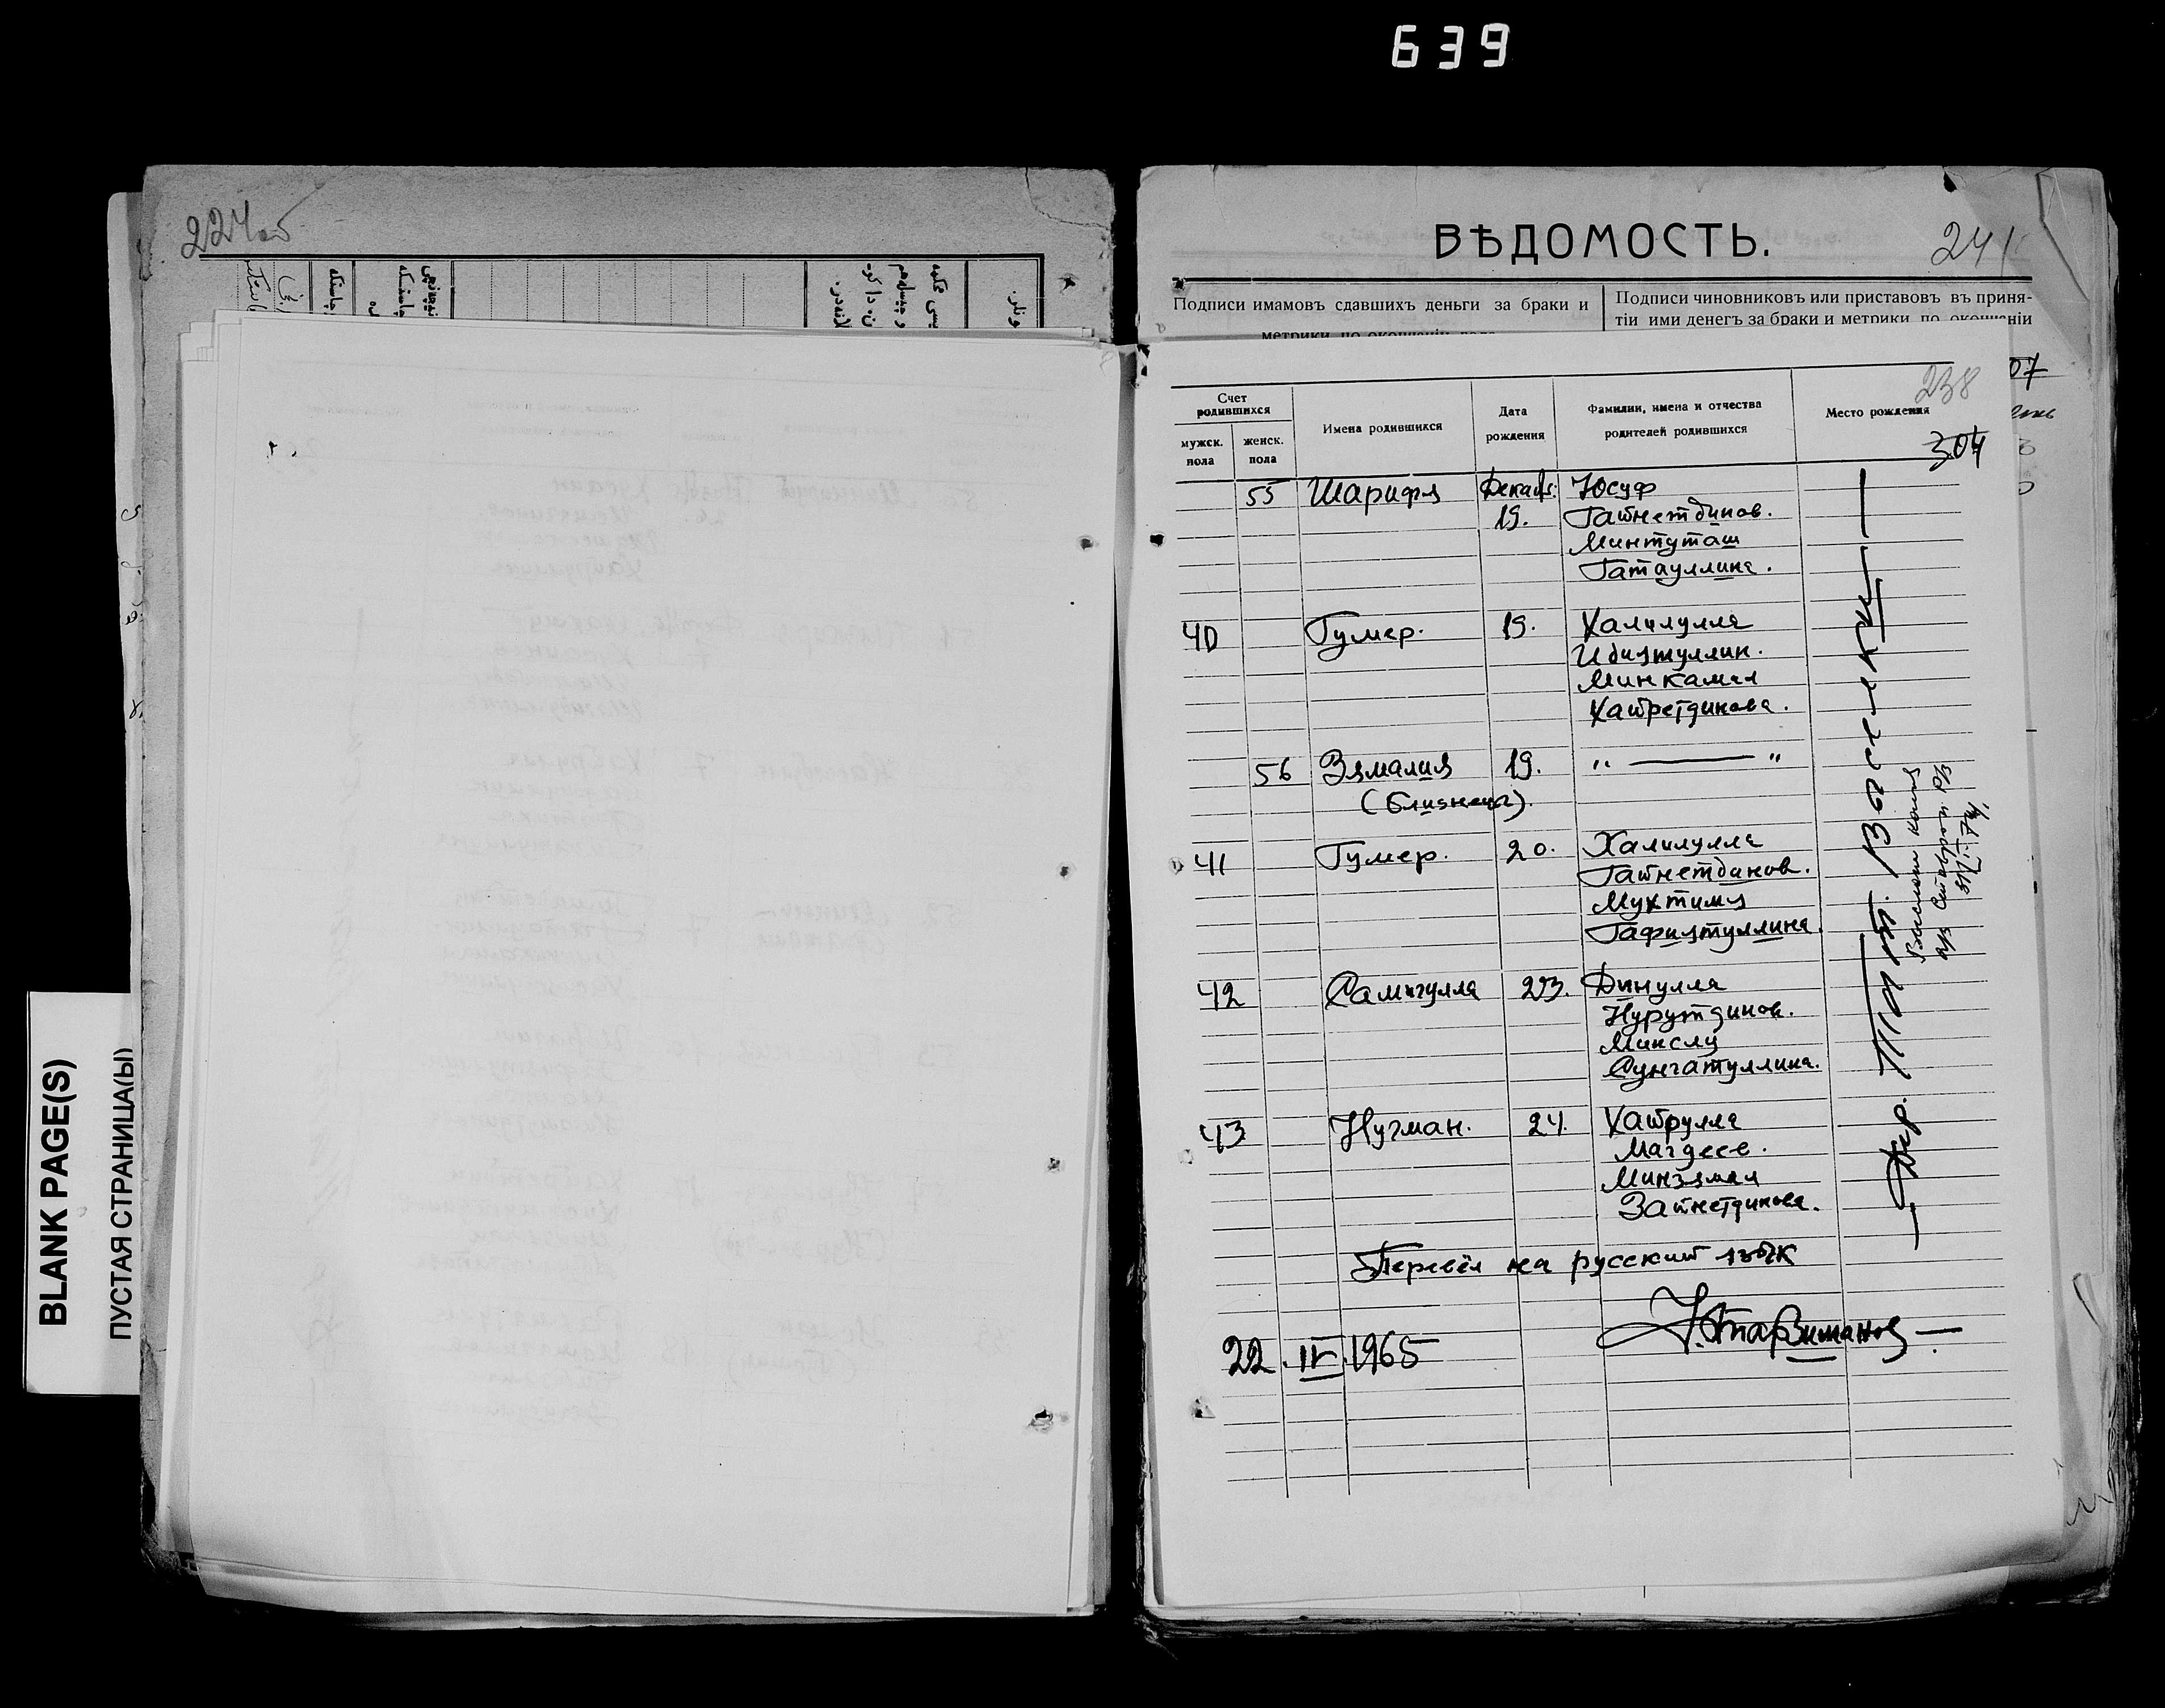 639
224об
ВѢДОМОСТЬ.
241
Подписи имамовъ сдавшихъ деньги за браки и
Подписи чиновниковъ или приставовъ въ приня-
тіи ими денегъ за браки и метрики по окончаніи
07
238
304
Счет родившихся
мужск. пола
женск. пола
Имена родившихся
Дата рождения
Фамилии, имена и отчества родителей родившихся
Место рождения
55 Шарифя Декабь: Юсуф
19. Гайнетдинов.
Минтуташ
Гатауллина.
40 Гумер. 19. Халилулла
Ибиятуллин.
Минкамал
Хайретдинова.
56 Зямалия 19. " — "
(близнецы).
41 Гумер. 20. Халилулла
Гайнетдинов.
Мухтимя
Гафиятуллина.
42 Самигулла 23. Динулла
Нурутдинов.
Минслу
Сунгатуллина.
43 Нугман. 24. Хайрулла
Магдеев.
Минзямал
Зайнетдинова.
— Дер.
Перевёл на русский язык
22.IV.1965
BLANK PAGE(S)
ПУСТАЯ СТРАНИЦА(Ы)